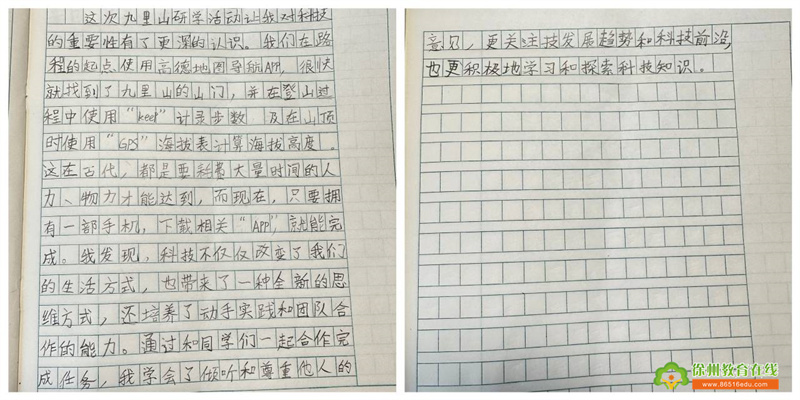 这次九里山研学活动让我对科技
的重要性有了更深的认识。我们在路
程的起点使用高德地图导航APP，很快
就找到了九里山的山门，并在登山过
程中使用“keep”计录步数 及在山顶
时使用“GPS”海拔表计算海拔高度。
这在古代，都是要耗费大量时间的人
力、物力才能达到，而现在，只要拥
有一部手机，下载相关“APP”，就能完
成。我发现，科技不仅仅改变了我们
的生活方式，也带来了一种全新的思
维方式，还培养了动手实践和团队合
作的能力。通过和同学们一起合作完
成任务，我学会了倾听和尊重他人的
意见，更关注技发展趋势和科技前沿，
也更积极地学习和探索科技知识。
徐州教育在线
www.86516edu.com